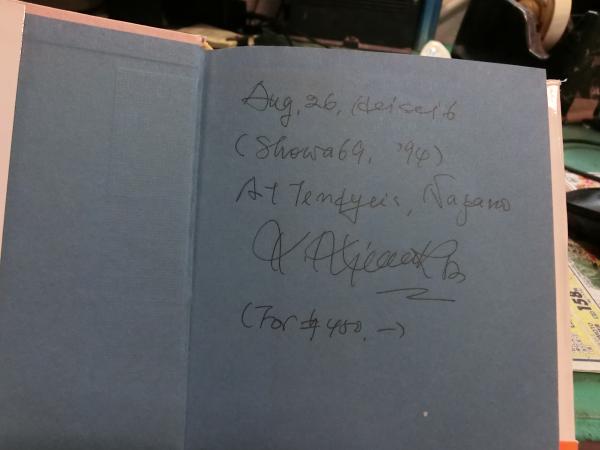 Aug, 26, Heisei 6
(Showa 69, '94)
At, Nagano
(For ¥ 450. —)
158